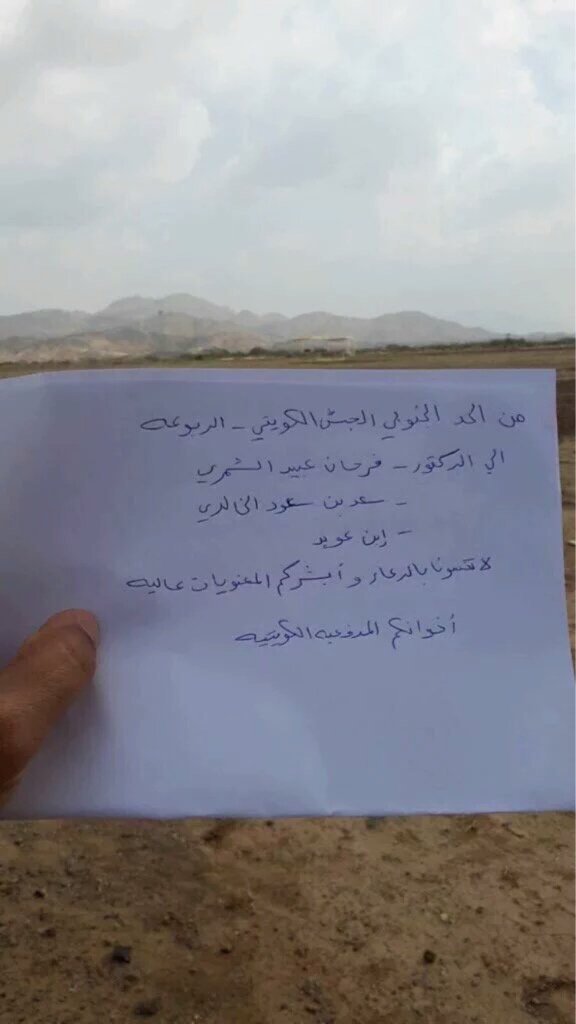 من الحد الجنوبي الجيش الكويتي - الربوعه
الي الدكتور - فرحان عبيد الشمري
- سعد بن سعود الخالدي
- إبن عويد
لا تنسونا بالدعاء وأبشركم المعنويات عاليه
أخوانكم المدفعيه الكويتيه